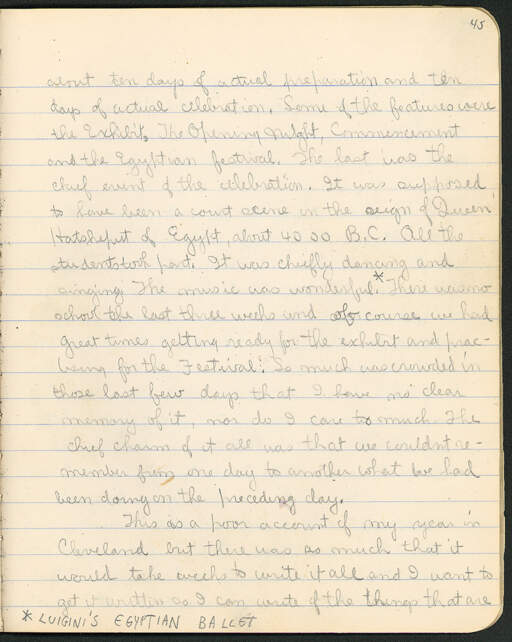 45
about ten days of actual preparation and ten
days of actual celebration. Some of the features were
the Exhibit, The Opening Night, Commencement
and the Egyptian festival. The last was the
chief event of the celebration. It was supposed
to have been a court scene in the reign of Queen
Hatsheput of Egypt, about 4000 B.C. All the
students took part. It was chiefly dancing and
singing. The music was wonderful.* There was no
school the last three weeks and of course we had
great times getting ready for the exhibit and prac-
ticing for the Festival. So much was crowded in
those last few days that I have no clear
memory of it, nor do I care to much. The
chief charm of it all was that we couldnt re-
member from one day to another what we had
been doing on the preceding day.
This is a poor account of my year in
Cleveland but there was so much that it
would take weeks to write it all and I want to
get it written so I can write of the things that are
* LUIGINI'S EGYPTIAN BALLET